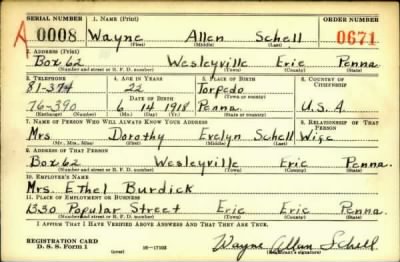 SERIAL NUMBER 1. NAME (Print) ORDER NUMBER
A 0008 Wayne Allen Schell 0671
(First) (Middle) (Last)
2. ADDRESS (Print)
Box 62 Wesleyville Erie Penna.
(Number and street or R. F. D. number) (Town) (County) (State)
3. TELEPHONE 4. AGE IN YEARS 5. PLACE OF BIRTH 6. COUNTRY OF CITIZENSHIP
81-374 22 Torpedo
DATE OF BIRTH (Town or county)
76-390 6 14 1918 Penna. U.S.A
(Exchange) (Number) (Mo.) (Day) (Yr.) (State or country)
7. NAME OF PERSON WHO WILL ALWAYS KNOW YOUR ADDRESS 8. RELATIONSHIP OF THAT PERSON
Mrs Dorothy Evelyn Schell Wife
(Mr., Mrs., Miss) (First) (Middle) (Last)
9. ADDRESS OF THAT PERSON
Box 62 Wesleyville Erie Penna.
(Number and street or R. F. D. number) (Town) (County) (State)
10. EMPLOYER'S NAME
Mrs. Ethel Burdick
11. PLACE OF EMPLOYMENT OR BUSINESS
1330 Popular Street Erie Erie Penna.
(Number and street or R. F. D. number) (Town) (County) (State)
I AFFIRM THAT I HAVE VERIFIED ABOVE ANSWERS AND THAT THEY ARE TRUE.
REGISTRATION CARD
D. S. S. Form 1 (over) 16-17105 Wayne Allen Schell
(Registrant's signature)